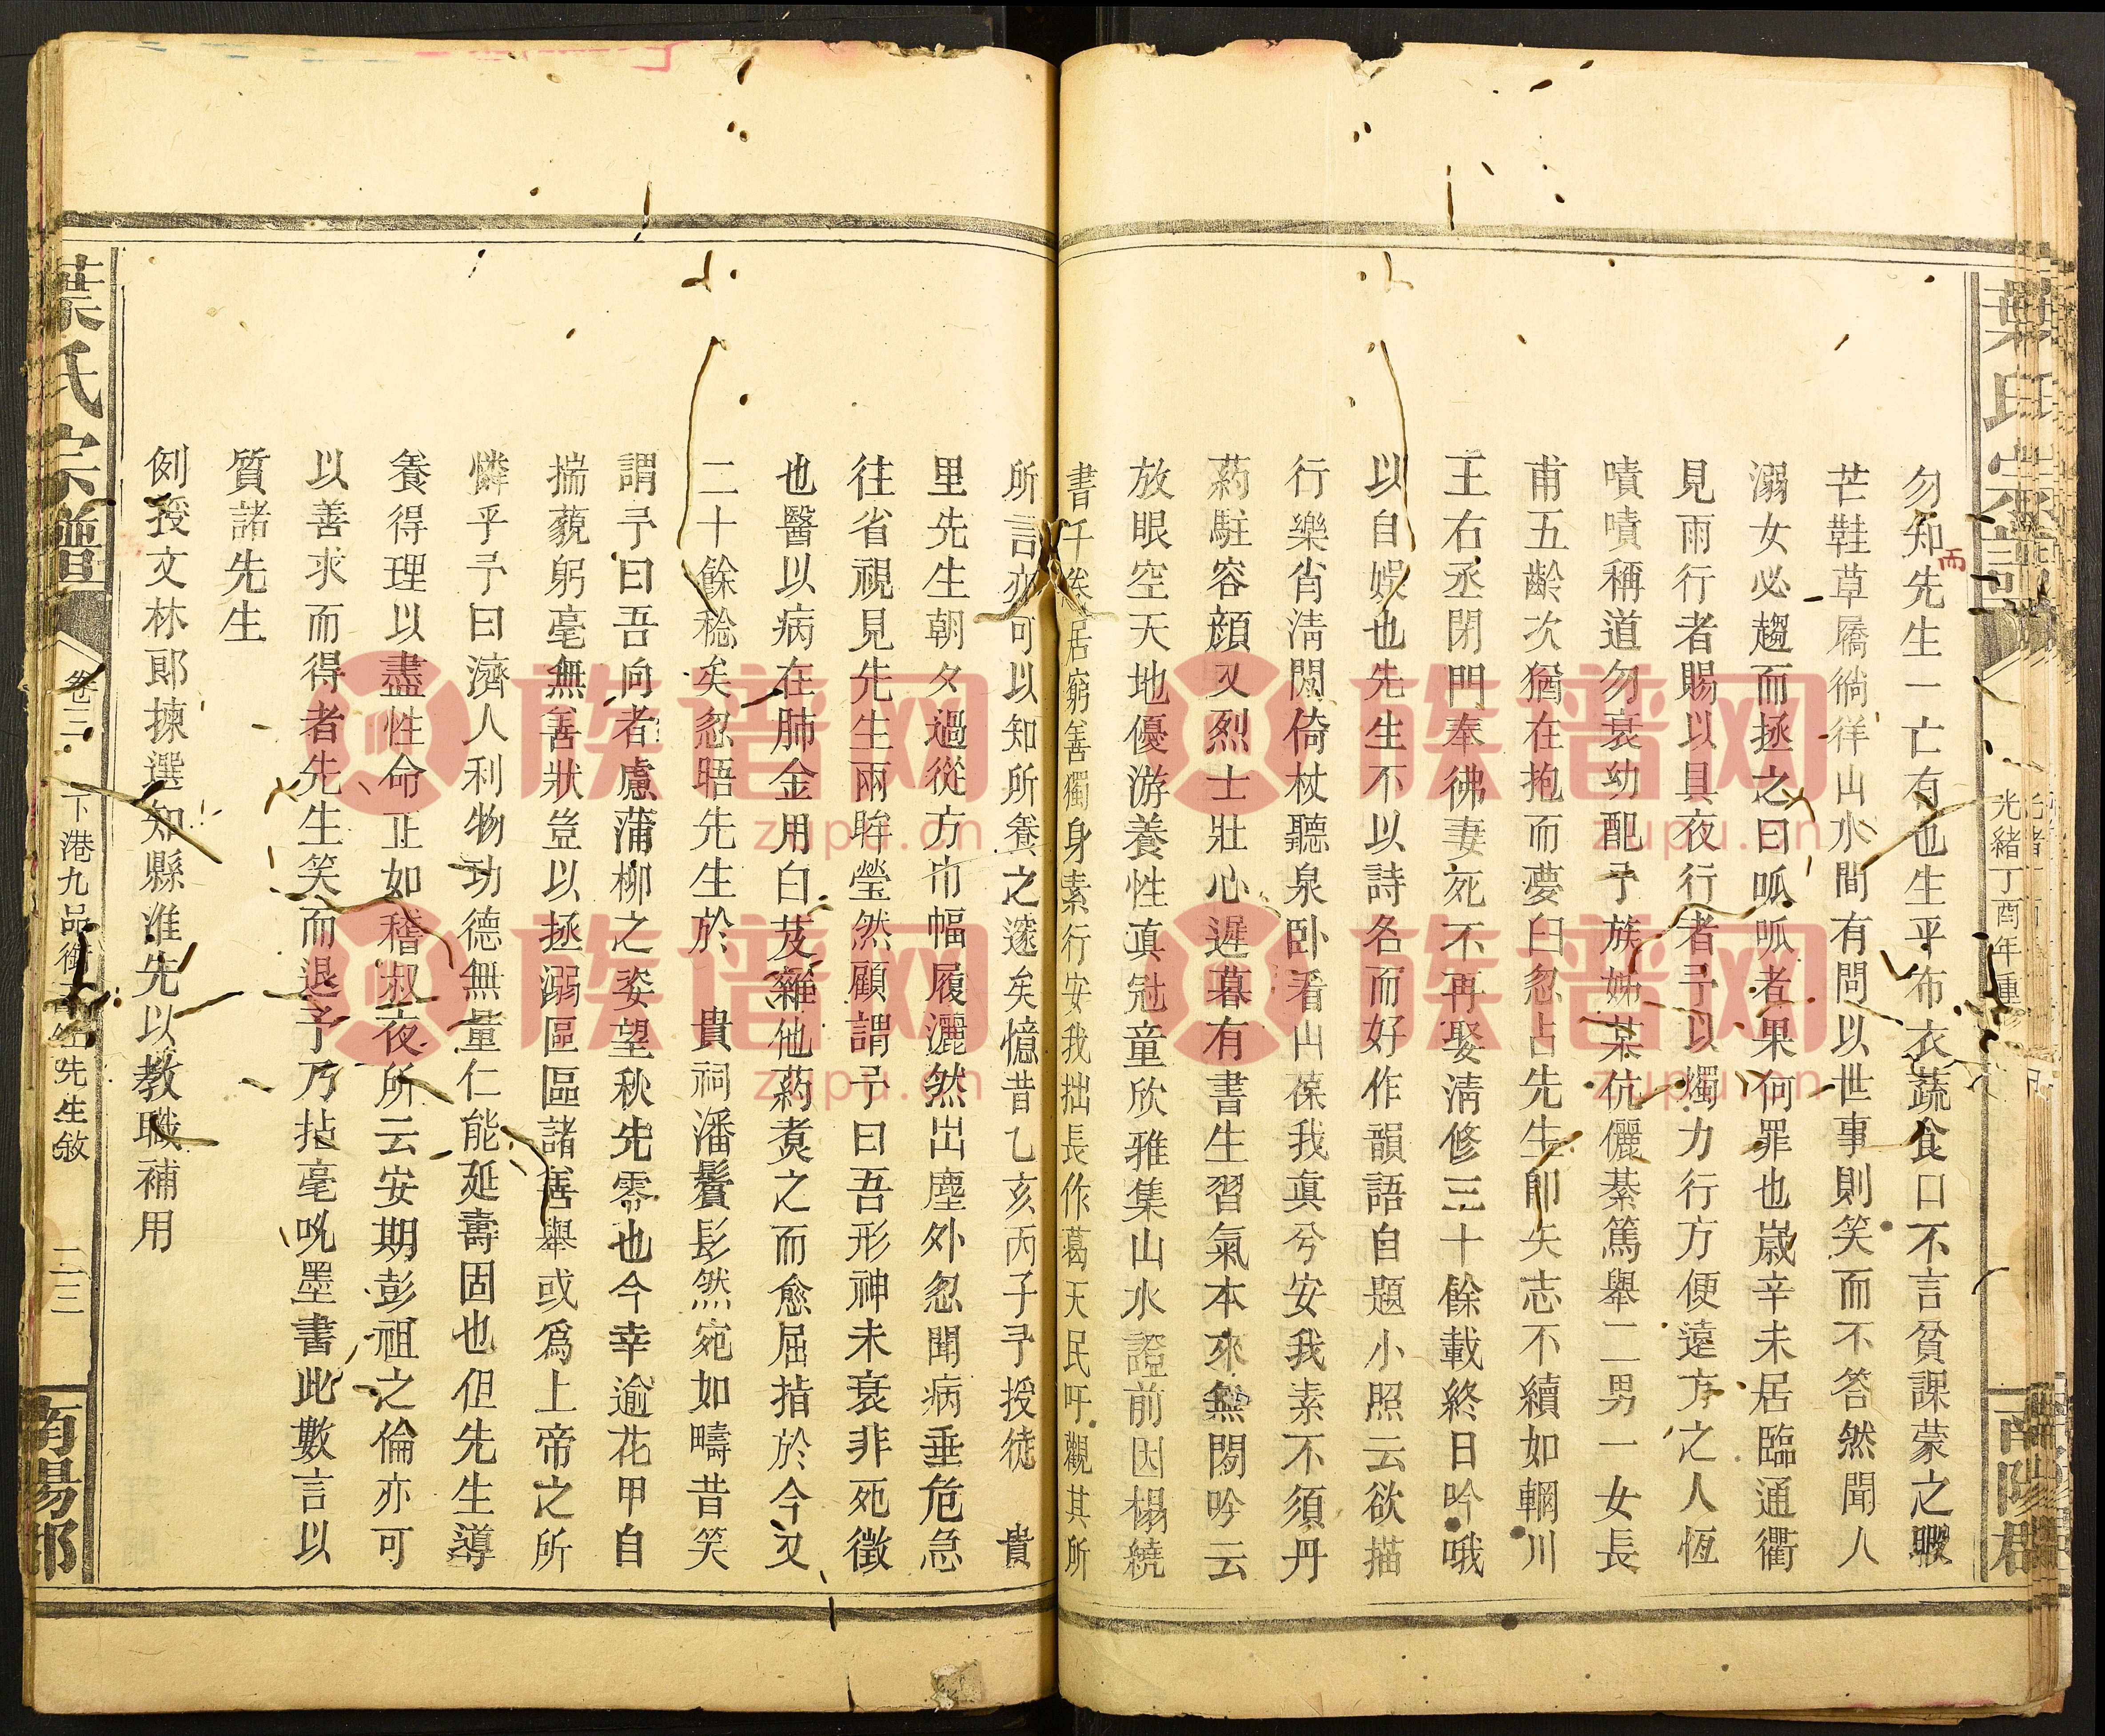 葉氏宗譜
光緒丁酉年重修
南陽郡
勿知先生一亡有也生平布衣蔬食口不言貧課蒙之暇
而
芒鞋草屩徜徉山水間有問以世事則笑而不答然聞人
溺女必趨而拯之曰呱呱者果何罪也歲辛未居臨通衢
見雨行者賜以具夜行者予以燭力行方便遠方之人恆
嘖嘖稱道勿衰幼配予族姊某伉儷綦篤舉二男一女長
甫五齡次猶在抱而夢臼忽占先生卽矢志不續如輞川
王右丞閉門奉彿妻死不再娶淸修三十餘載終日吟哦
以自娛也先生不以詩名而好作韻語自題小照云欲描
行樂肖淸閒倚杖聽泉卧看山葆我眞兮安我素不須丹
葯駐容顔又烈士壯心遲暮有書生習氣本來無閒吟云
放眼空天地優游養性眞冠童欣雅集山水證前因榻繞
書千卷居窮善獨身素行安我拙長作葛天民吁觀其所
所言亦可以知所養之邃矣憶昔乙亥丙子予授徒　貴
里先生朝夕過從方巾幅履灑然出塵外忽聞病垂危急
往省視見先生兩眸瑩然顧謂予曰吾形神未衰非死徵
也醫以病在肺金用白芨雜他葯煑之而愈屈指於今又
二十餘稔矣忽晤先生於　貴祠潘鬢髟然宛如疇昔笑
謂予曰吾向者慮蒲柳之姿望秋先零也今幸逾花甲自
揣藐躬毫無善狀豈以拯溺區區諸善舉或爲上帝之所
憐乎予曰濟人利物功德無量仁能延壽固也但先生導
養得理以盡性命正如稽叔夜所云安期彭祖之倫亦可
以善求而得者先生笑而退予乃拈毫吮墨書此數言以
質諸先生
例授文林郞揀選知縣淮先以教職補用
葉氏宗譜
卷三
下港九品銜　先生敘
二三
南陽郡
族谱网
zupu.cn
族谱网
zupu.cn
族谱网
zupu.cn
族谱网
zupu.cn